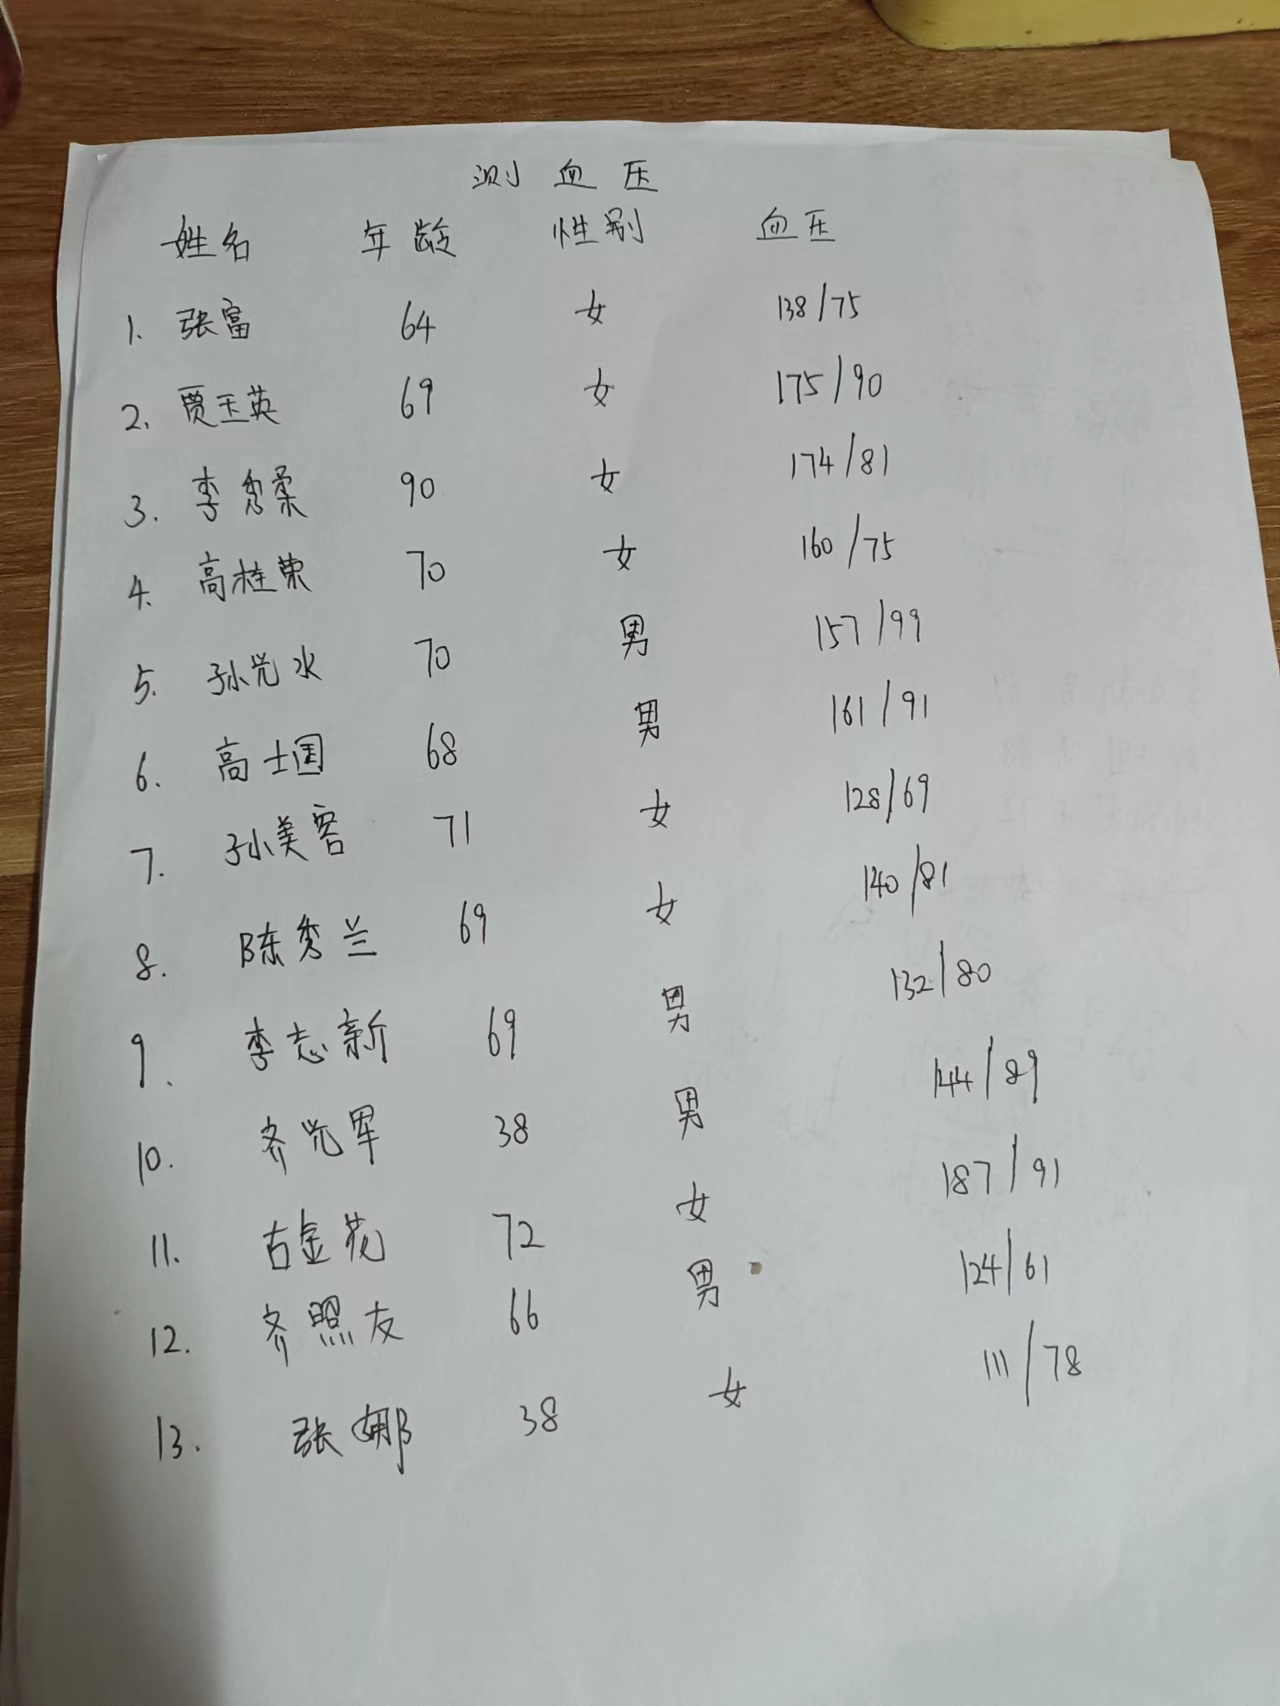 测血压
姓名 年龄 性别 血压
1. 张富 64 女 138/75
2. 贾玉英 69 女 175/90
3. 李秀柔 90 女 174/81
4. 高桂荣 70 女 160/75
5. 孙光水 70 男 157/99
6. 高士国 68 男 161/91
7. 孙美容 71 女 128/69
8. 陈秀兰 69 女 140/81
9. 李志新 69 男 132/80
10. 齐光军 38 男 144/89
11. 古金花 72 女 187/91
12. 齐照友 66 男 124/61
13. 张娜 38 女 111/78